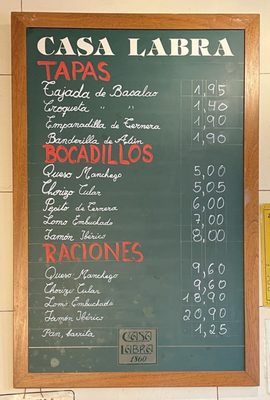 CASA LABRA
TAPAS
Tajada de Bacalao 1,95
Croqueta " " 1,40
Empanadilla de Ternera 1,90
Banderilla de Atún 1,90
BOCADILLOS
Queso Manchego 5,00
Chorizo Cular 5,05
Pepito de Ternera 6,00
Lomo Embuchado 7,00
Jamón Ibérico 8,00
RACIONES
Queso Manchego 9,60
Chorizo Cular 9,60
Lomo Embuchado 18,90
Jamón Ibérico 20,90
Pan, barrita 1,25
CASA
LABRA
1860